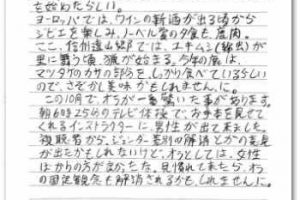 を始めたらしい。
ヨーロッパでは、ワインの新酒が出る頃から
ジビエを楽しみ、ノーベル賞の夕食も鹿肉。
ここ、信州遠山郷では、エチムシ(綿虫)が
里に舞う頃、猟が始まる。今年の鹿は、
マツタケのカサの部分を、しっかり食べているらしい
ので、さぞかし美味かもしれません。に。
この10月で、わが一番驚いた事があります。
朝6時25分のテレビ体操で、お手本を見せて
くれるインストラクターに、男性が出てました。
視聴者から、ジェンダー差別の解消とかの意見
が出たかもしれないけど、わとしては、女性
ばからの方が良かった。見慣れてきたら、わ
の固定観念も解消されるかも、しれませんに。